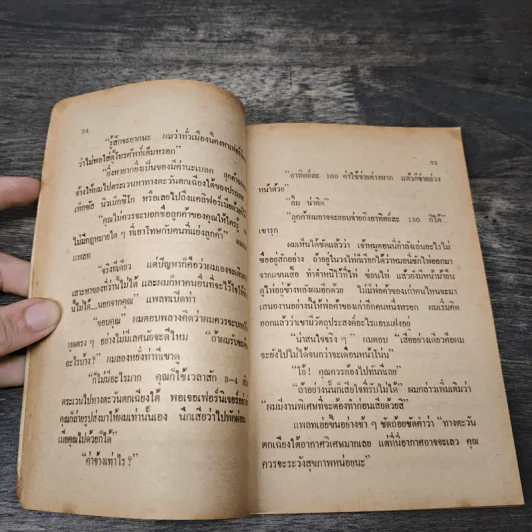 54
"รู้สึกจะยากนะ ผมว่าทั่วเมืองนี้คงหาเฟอร์
ว่าไม่พอใส่ตู้โทรศัพท์เต็มหรอก"
"ยิ่งหายากยิ่งเป็นของมีค่านะเบลค ลูกค้าของ
จ้างให้ผมไปตระเวนหาทางตะวันตกเฉียงใต้ของประเทศ
เท็กซัส นิวเม็กซิโก หรือเลยไปถึงแคลิฟอร์เนียก็ได้
"คุณไม่ควรจะบอกชื่อลูกค้าของคุณให้ใครรู้
ไม่มีกฎหมายใด ๆ ที่เอาโทษกับคนที่แย่งลูกค้า"
แพลท
"จริงทีเดียว แต่ปัญหาก็คือว่าผมเองจะเดินทาง
เสาะหาของที่ว่านี้ไม่ได้ และผมก็หาคนอื่นที่จะไว้ใจให้
นี้ไม่ได้...นอกจากคุณ" แพลทเบ็ดท่า
"ขอบคุณ" ผมตอบพลางคิดว่าผมควรจะบอก
เลยตรง ๆ อย่างไม่มีเลศนัยจะดีไหม "ถ้าผมรับจะต้อง
อะไรบ้าง?" ผมลองหยั่งท่าทีเขาดู
"ก็ไม่มีอะไรมาก คุณก็ใช้เวลาสัก 3-4
ตระเวนไปทางตะวันตกเฉียงใต้ พอเจอเฟอร์นิเจอร์อย่าง
คุณก็ถ่ายรูปส่งมาให้ผมเท่านั้นเอง นึกเสียว่าไปพักผ่อน
เมื่อคุณไปด้วยก็ได้"
"ค่าจ้างเท่าไร?"
55
"อาทิตย์ละ 100 ค่าใช้จ่ายต่างหาก แล้วก็จ่ายล่วง
หน้าด้วย"
"อืม น่าคิด"
"ลูกค้าผมอาจจะยอมจ่ายถึงอาทิตย์ละ 150 ก็ได้"
เขารุก
ผมเห็นได้ชัดแล้วว่า เจ้าหมูตอนนี่กำลังเล่นอะไรไม่
ซื่ออยู่สักอย่าง ถ้าอยู่ในวงไพ่ก็เรียกได้ว่าหมอนี่ชักไพ่ออกมา
จากแขนเสื้อ ทำตำหนิไว้ที่ไพ่ ซ่อนไพ่ แล้วยังมีหน้าม้ายืน
ดูไพ่อยู่ข้างหลังผมอีกด้วย ไม่มีพ่อค้าของเก่าคนไหนจะมา
เสนองานอย่างนี้ให้พ่อค้าของเก่าอีกคนหนึ่งหรอก ผมเริ่มคิด
ออกแล้วว่าเขามีวัตถุประสงค์อะไรแอบแฝงอยู่
"น่าสนใจจริง ๆ" ผมตอบ "เสียอย่างเดียวคือผม
จะยังไปไม่ได้จนกว่าจะเดือนหน้าโน่น"
"โอ้! คุณควรต้องไปทันทีเลย"
"ถ้าอย่างนั้นก็เสียใจที่รับไม่ได้" ผมกล่าวเพิ่มเติมว่า
"ผมมีงานพิเศษที่จะต้องทำก่อนเสียด้วยสิ"
แพลทเอ่ยขึ้นอย่างช้า ๆ ชัดถ้อยชัดคำว่า "ทางตะวัน
ตกเฉียงใต้อากาศวิเศษมากเลย แต่ที่นี่อากาศอาจจะเลว คุณ
ควรจะระวังสุขภาพหน่อยนะ"